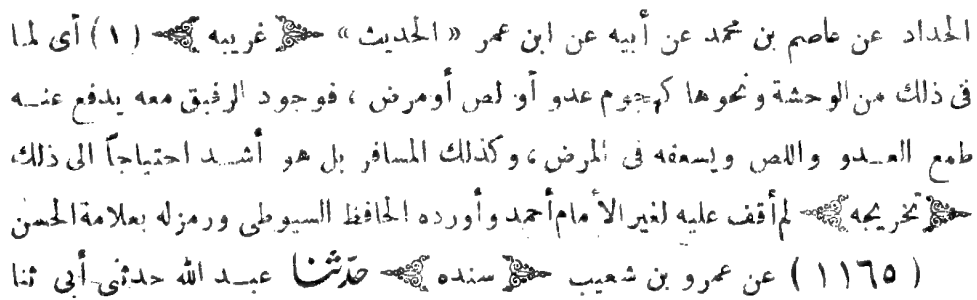 الحداد عن عاصم بن محمد عن أبيه عن ابن عمر « الحديث » ﴿ غريبه ﴾ (١) أى لما
فى ذلك من الوحشة ونحوها كهجوم عدو أو لص أو مرض ، فوجود الرفيق معه يدفع عنه
طمع العدو واللص ويسعفه فى المرض ، وكذلك المسافر بل هو أشد احتياجاً الى ذلك
﴿ تخريجه ﴾ لم أقف عليه لغير الأمام أحمد وأورده الحافظ السيوطى ورمز له بعلامة الحسن
(١١٦٥) عن عمرو بن شعيب ﴿ سنده ﴾ حدثنا عبد الله حدثنى أبى ثنا